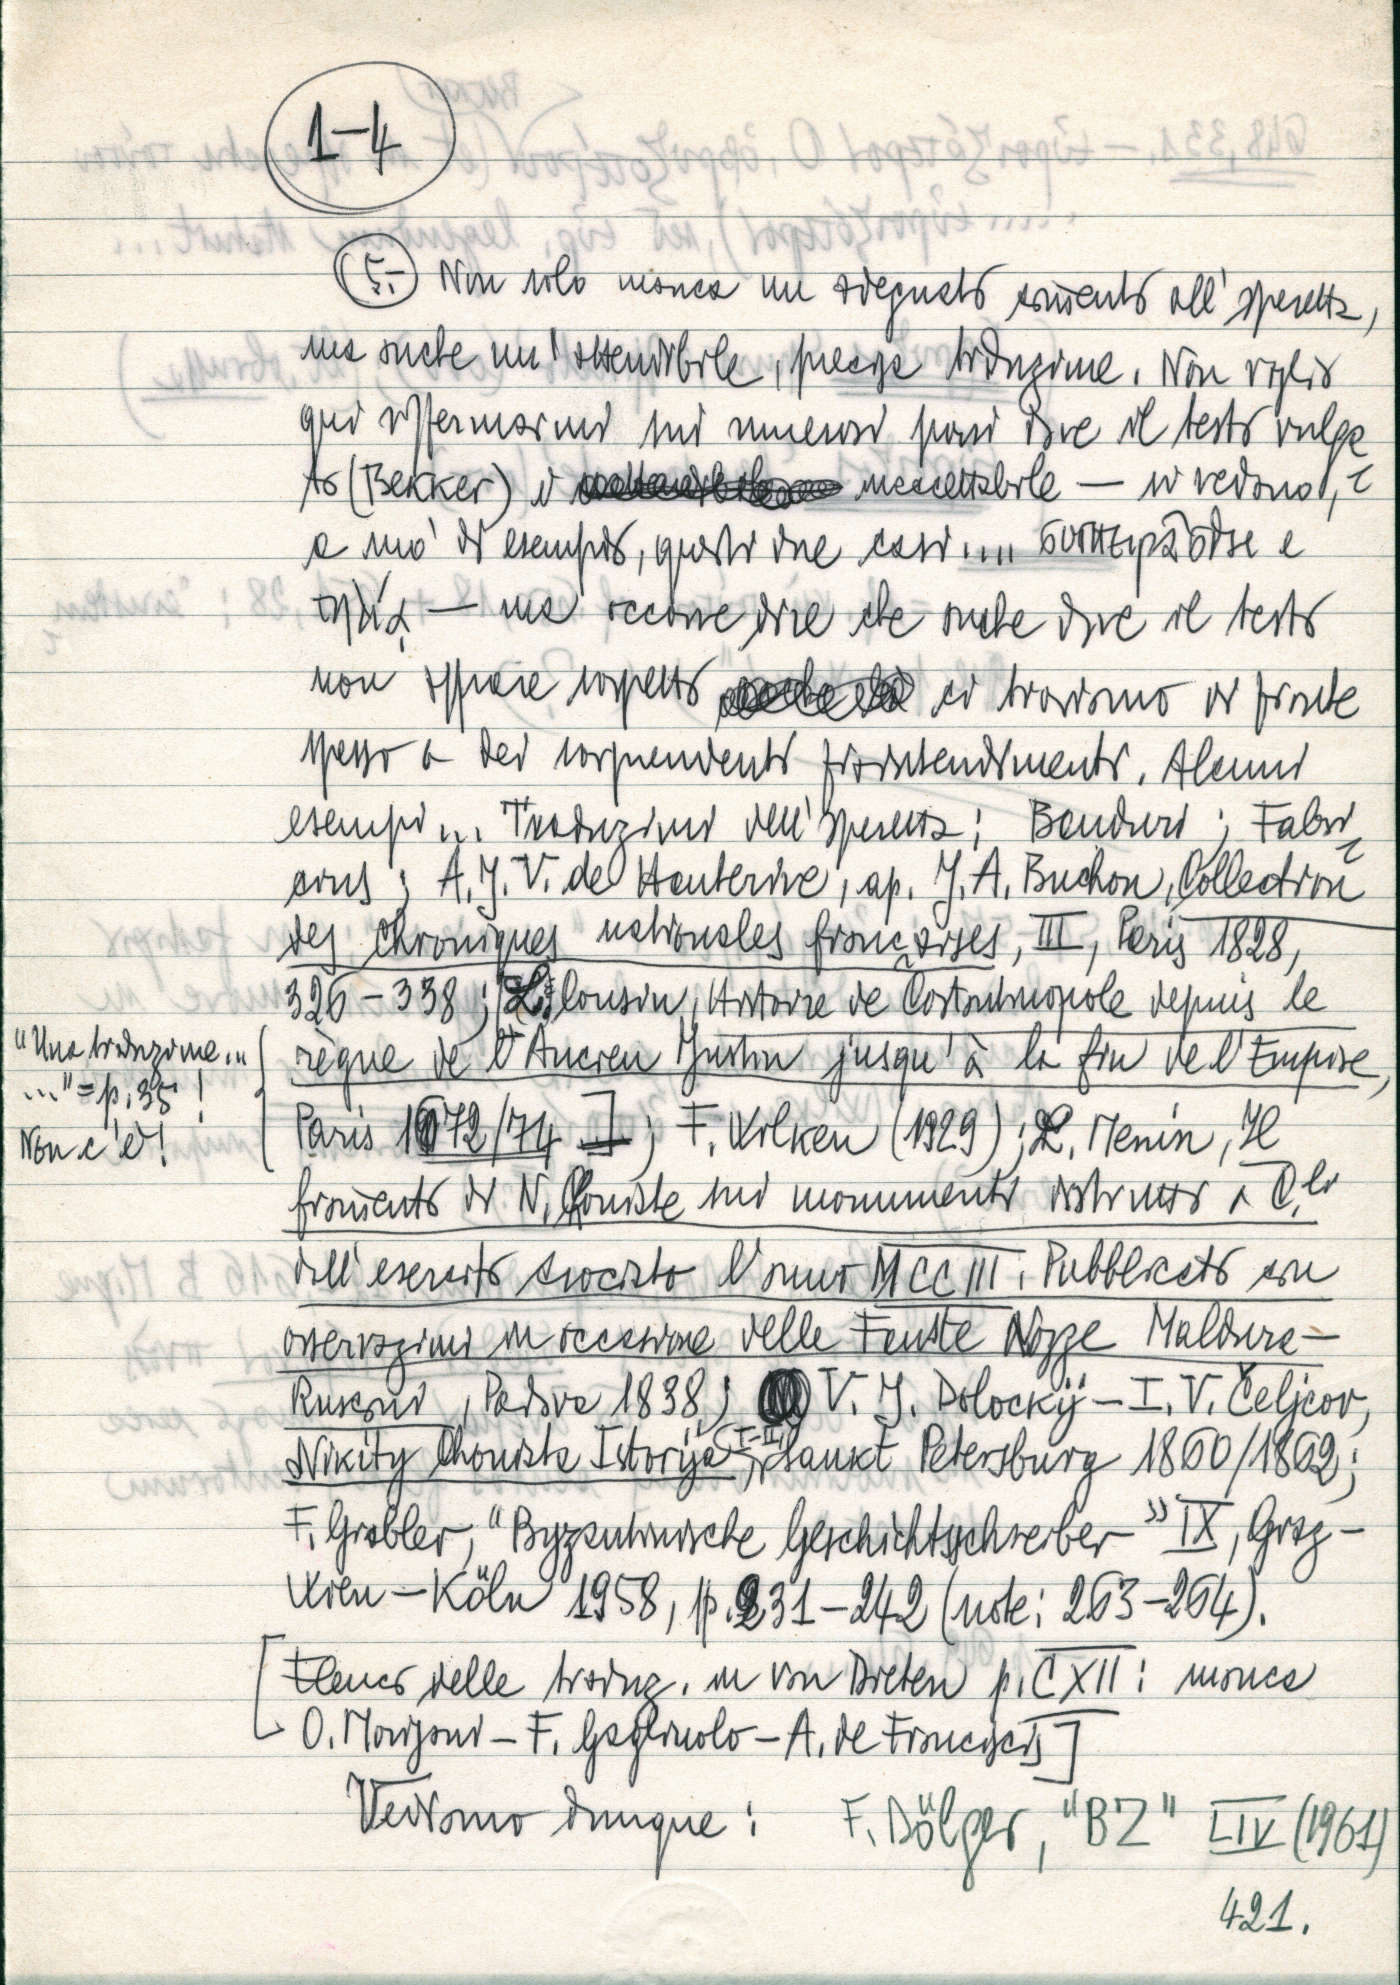 1–4
5.– Non solo manca un adeguato commento all'operetta,
ma anche un'attendibile, precisa traduzione. Non voglio
qui soffermarmi sui numerosi passi dove il testo vulga
to (Bekker) è inaccettabile — si vedano,
a mo' di esempio, questi due casi.... e
— ma occorre dire che anche dove il testo
non appare sospetto ci troviamo di fronte
spesso a dei sorprendenti fraintendimenti. Alcuni
esempi... Traduzioni dell'operetta: Banduri; Fabri
cius; A.J.V. de Hauterive, ap. J.A. Buchon, Collection
des chroniques nationales françaises, III, Paris 1828,
326–338; L. Cousin, Histoire de Costantinopole depuis le
règne de l'Ancien Justin jusqu'à la fin de l'Empire,
"Una traduzione...
..." = p. 35!
Non c'è!
Paris 1672/74]; F. Wilken (1829); L. Menin, Il
frammento di N. Coniate sui monumenti distrutti a C.li
dall'esercito crociato l'anno MCCIII. Pubblicato con
osservazioni in occasione delle Fauste Nozze Maldura–
Rusconi, Padova 1838; V.J. Dolockij – I.V. Čeljcov,
Nikity Choniata Istorija I–II, Sankt Petersburg 1860/1862;
F. Grabler, "Byzantinische Geschichtsschreiber" IX, Graz–
Wien–Köln 1958, p. 231–242 (note: 263–264).
[Elenco delle traduz. in van Dieten p. CXII: manca
O. Morisani – F. Gagliuolo – A. de Franciscis]
Vediamo dunque: F. Dölger, "BZ" LIV (1961)
421.